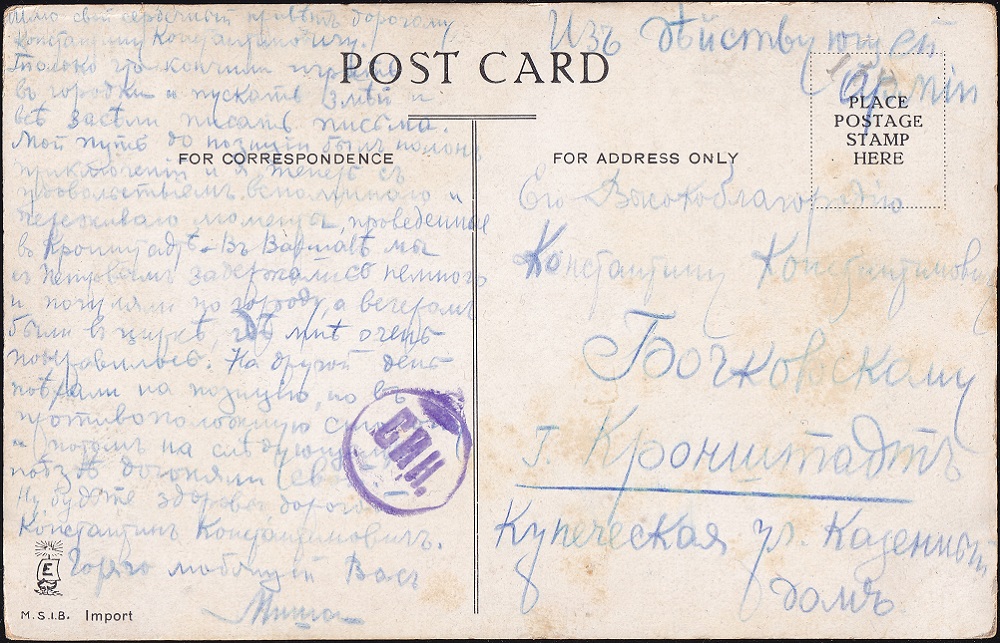 Шлю свой сердечный привѣтъ дорогому
Константину Константиновичу.
Только что кончили играть
въ городки и пускать змѣй и
всѣ засѣли писать письма.
Мой путь до позиціи былъ полонъ
приключеній и я теперь съ
удовольствіемъ вспоминаю и
переживаю моменты, проведенные
въ Кронштадтѣ. Въ Варшавѣ мы
съ задержались немного
и погуляли по городу, а вечеромъ
были въ циркѣ, гдѣ мнѣ очень
понравилось. На другой день
поѣхали на позицію, но въ
противоположную
и потомъ на слѣдующій
догоняли
Ну будьте здоровы дорогой
Константинъ Константиновичъ.
Горячо любящій Васъ
Миша
POST CARD
FOR CORRESPONDENCE
FOR ADDRESS ONLY
PLACE
POSTAGE
STAMP
HERE
Изъ Дѣйствующей
Арміи
Его Высокоблагородію
Константину Константиновичу
Бочковскому
г. Кронштадтъ
Купеческая ул. Казенный
домъ
E
M.S.I.B. Import